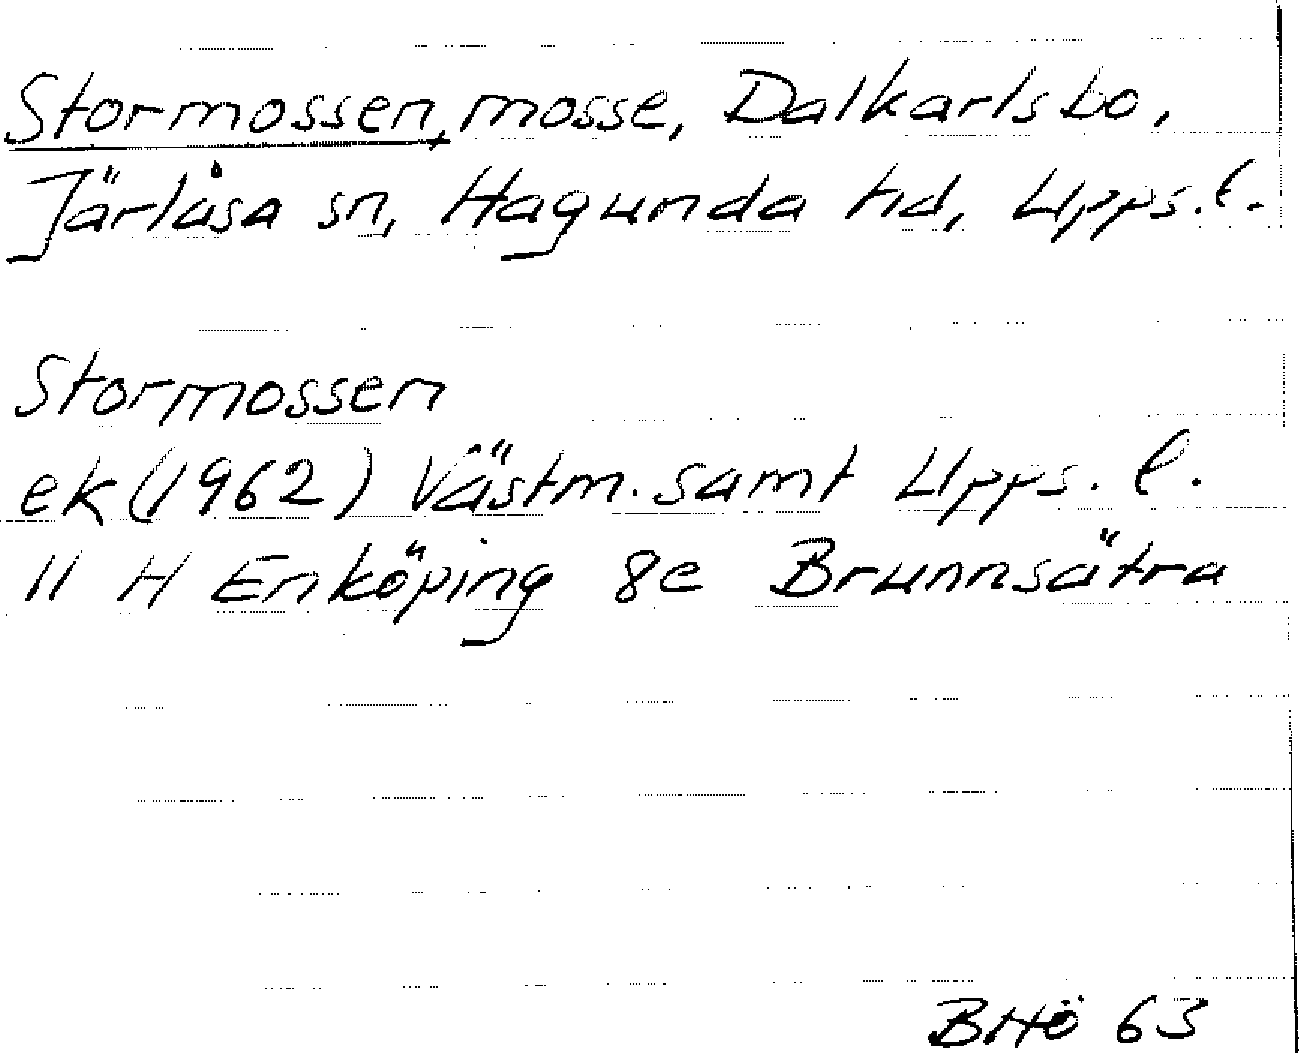 Stormossen, mosse, Dalkarlsbo,
Järlåsa sn, Hagunda hd, Upps. l.
Stormossen
ek (1962) Västm. samt Upps. l.
11 H Enköping 8e Brunnsätra
BHö 63